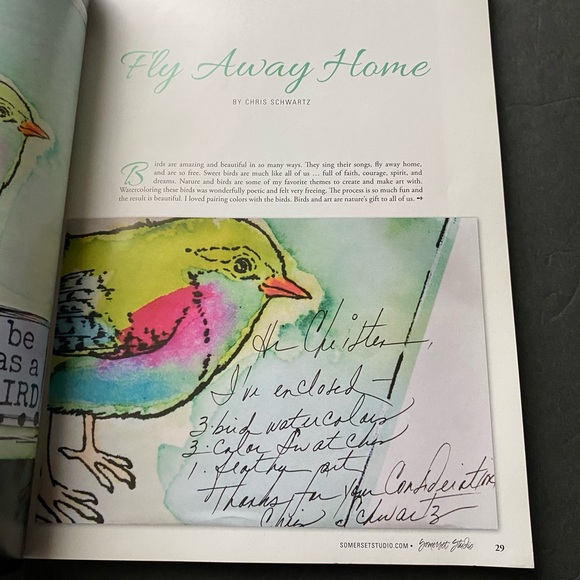 Fly Away Home
BY CHRIS SCHWARTZ
Birds are amazing and beautiful in so many ways. They sing their songs, fly away home,
and are so free. Sweet birds are much like all of us … full of faith, courage, spirit, and
dreams. Nature and birds are some of my favorite themes to create and make art with.
Watercoloring these birds was wonderfully poetic and felt very freeing. The process is so much fun and
the result is beautiful. I loved pairing colors with the birds. Birds and art are nature's gift to all of us.
be
as a
IRD
Hi Christen,
I've enclosed –
3. bird watercolors
3. Color Swatches
1. feathy art
Thanks for your Consideration
Chris Schwartz
SOMERSETSTUDIO.COM • Somerset Studio 29